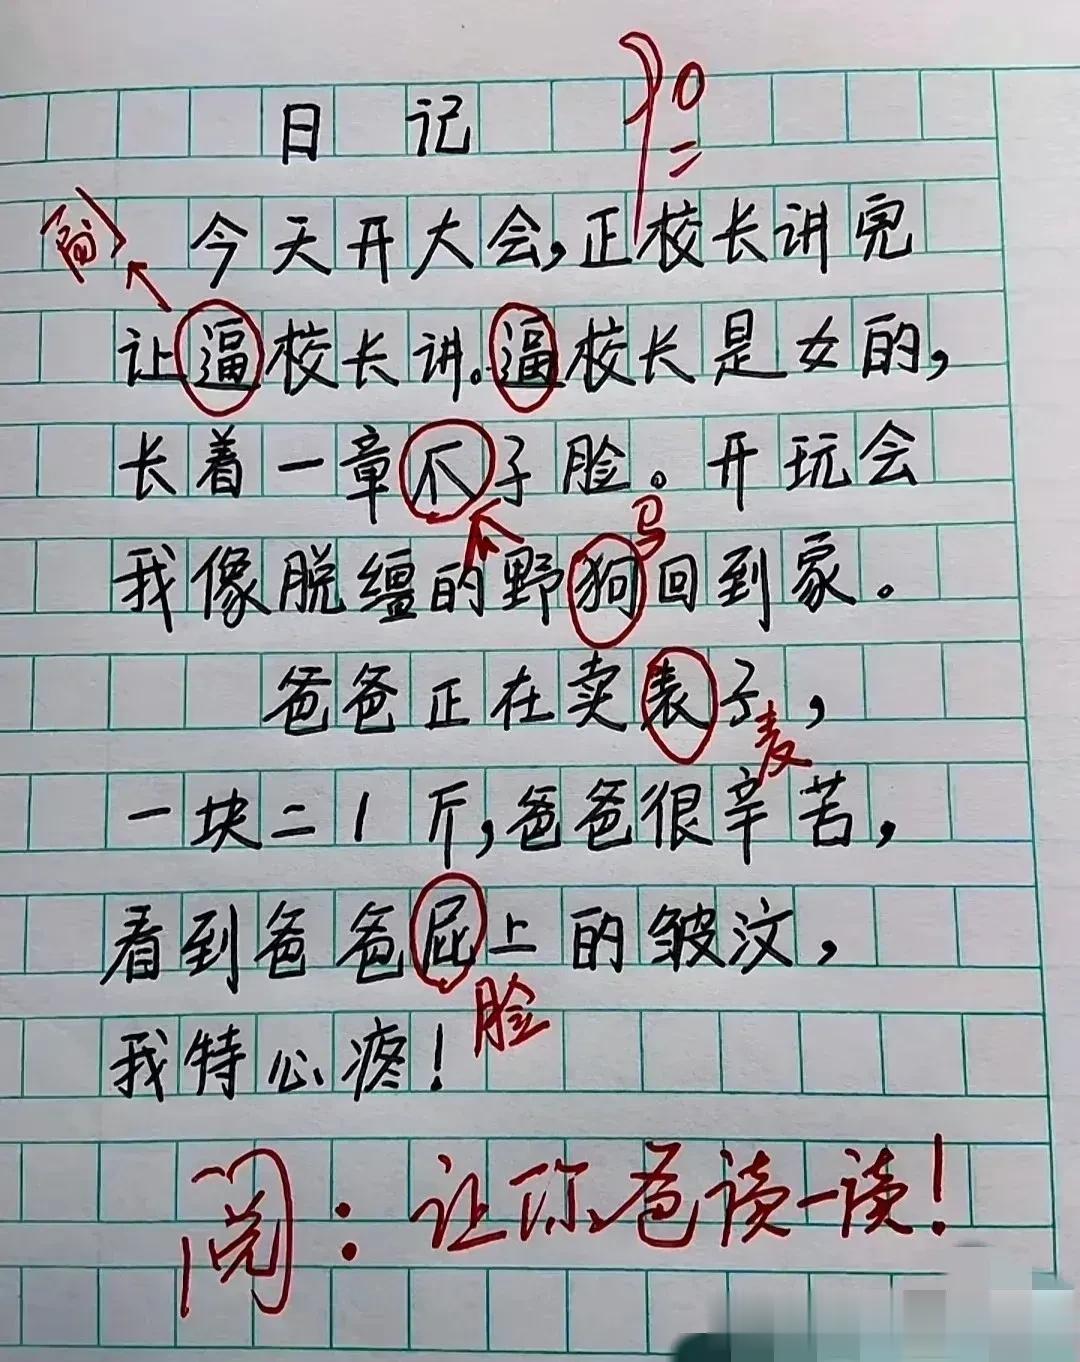 日记
90
副
今天开大会,正校长讲完
让逼校长讲。逼校长是女的,
长着一章不子脸。开玩会
瓜
马
我像脱缰的野狗回到家。
爸爸正在卖表子,
麦
一块二1斤,爸爸很辛苦,
看到爸爸屁上的皱汶,
脸
我特心疼!
阅:让你爸读一读!